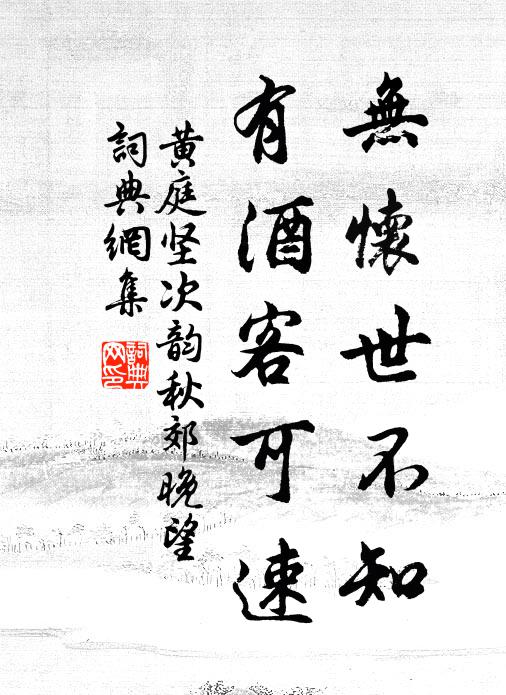 無懷世不知
有酒客可速
黄庭坚次韵秋郊晚望
詞典網集
詞典
网印